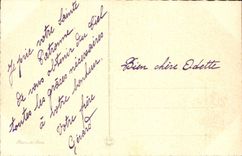 Je prie votre Sainte
Patronne
de vous obtenir du Ciel
toutes les grâces nécessaires
à votre bonheur.
Votre frère
Gérard
Bien chère Odette